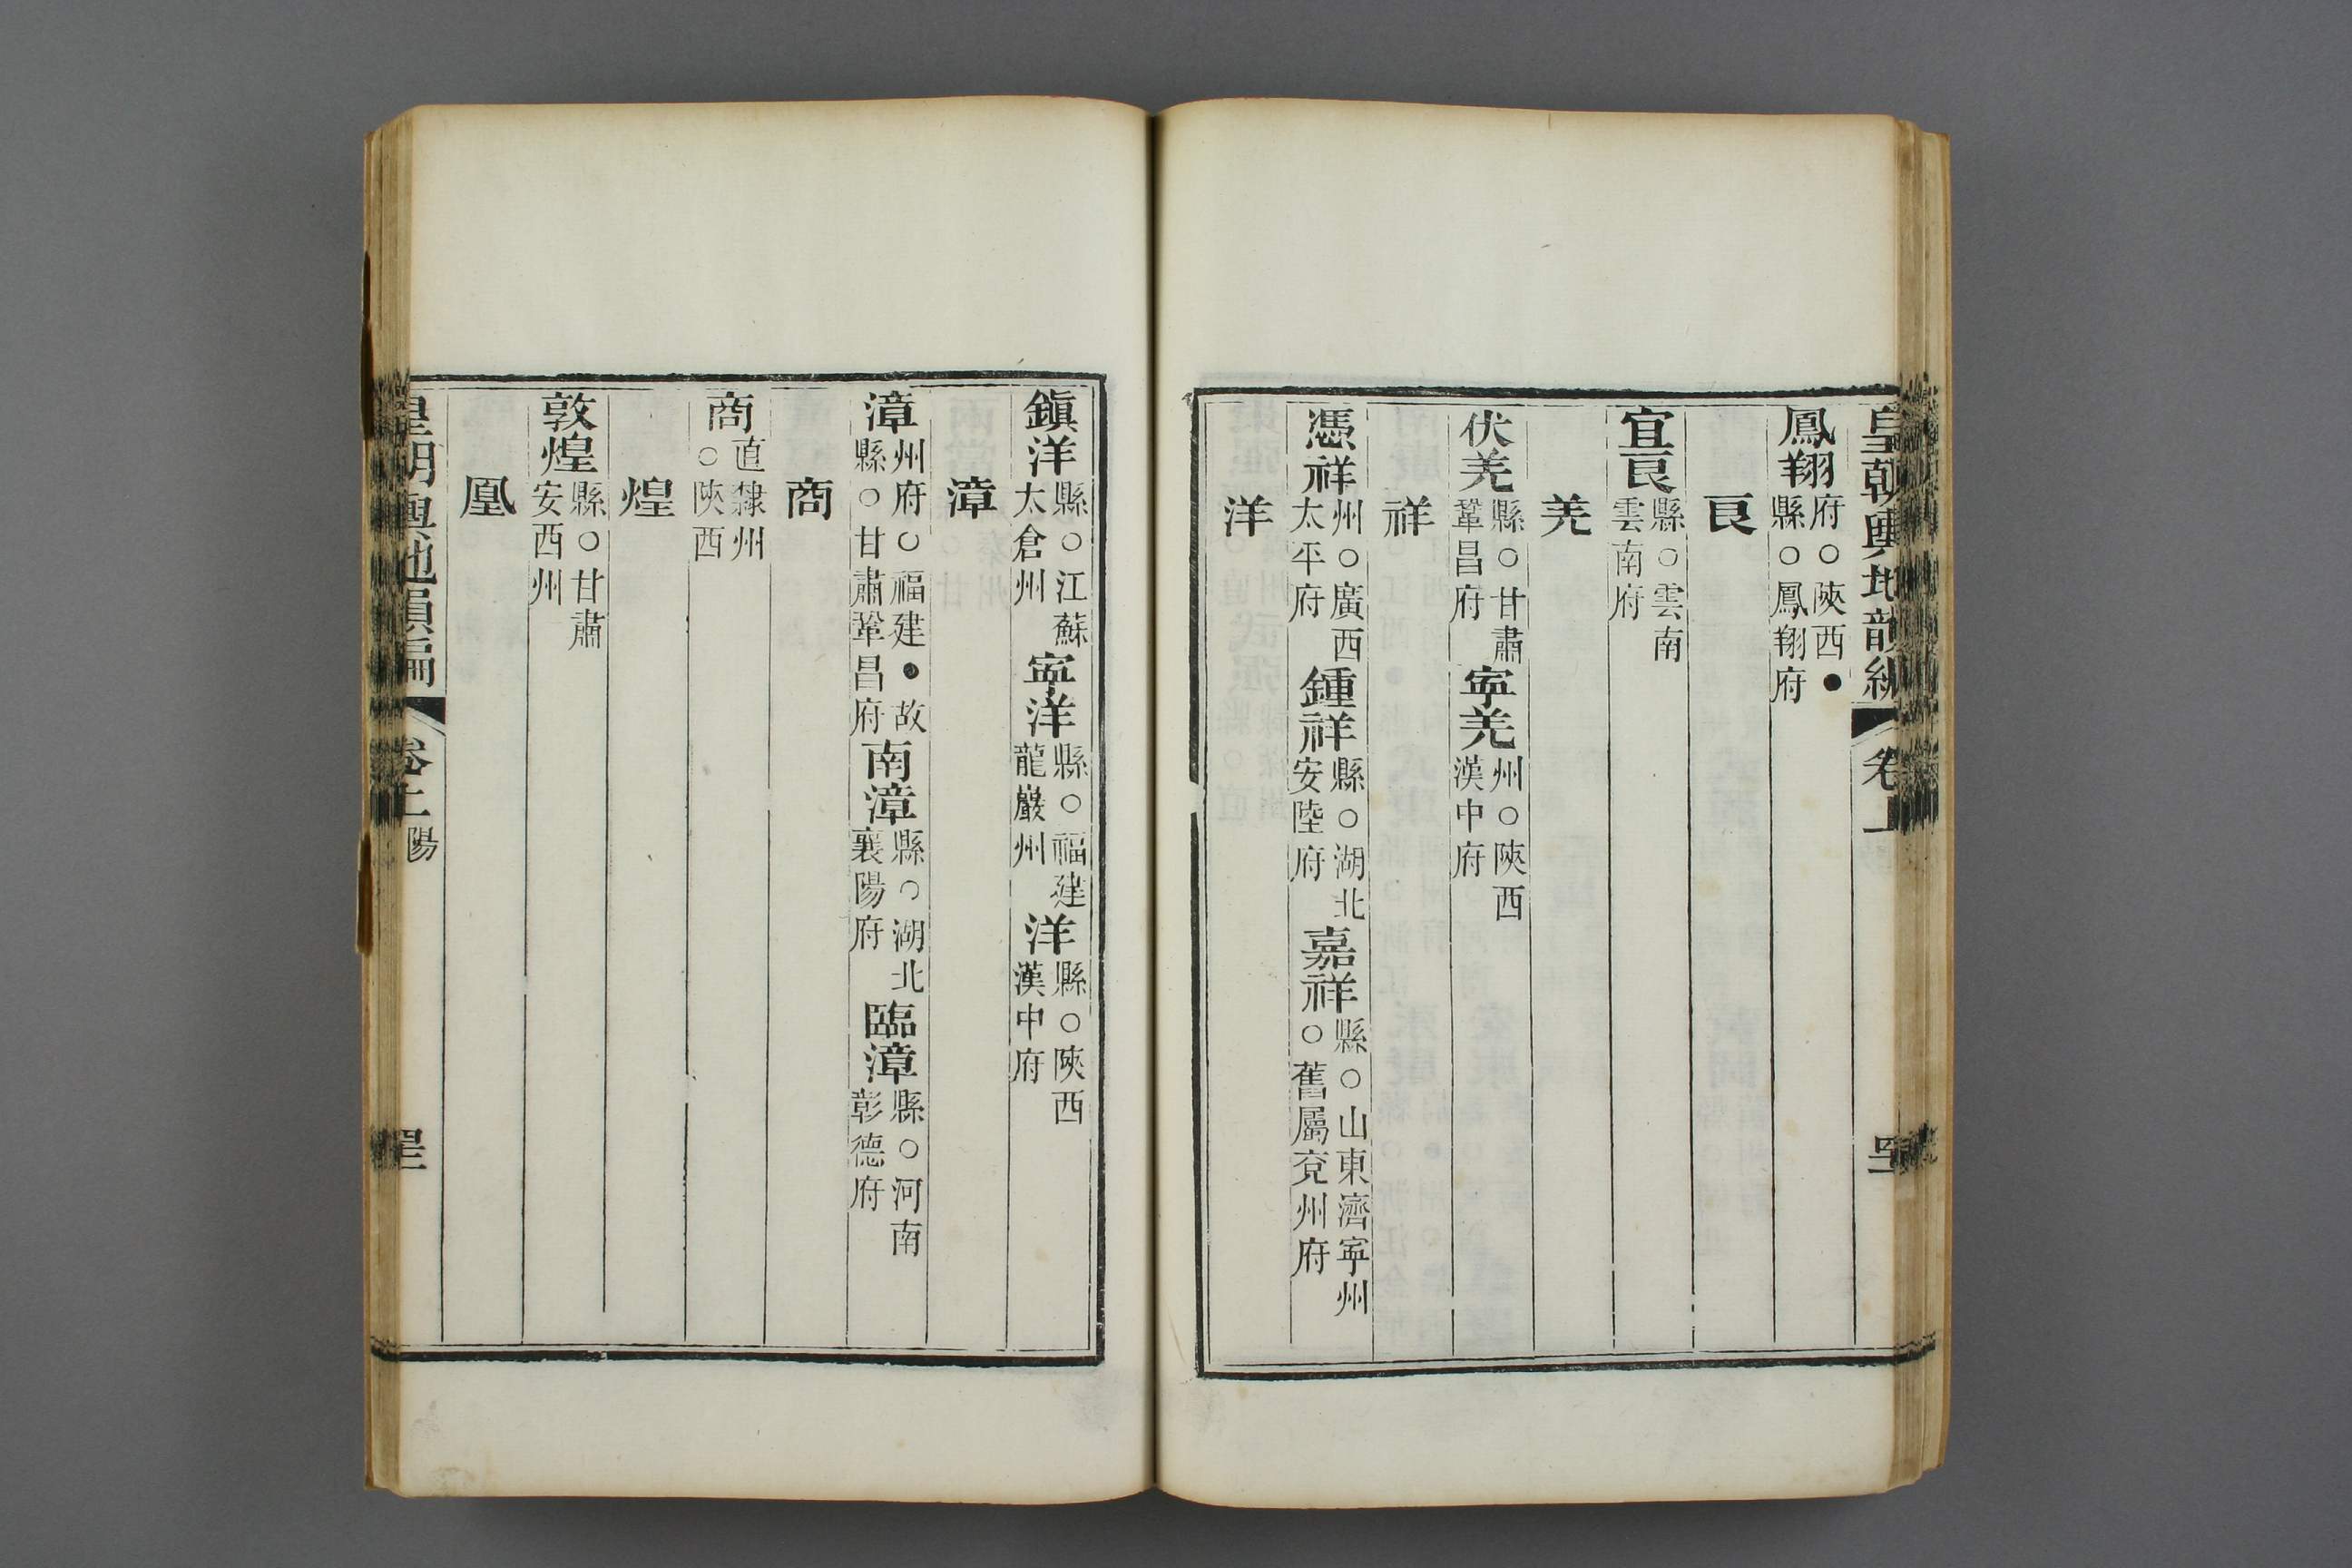 皇朝輿地韻編 卷上
鳳翔府○陜西●縣○鳳翔府
良
宜良縣○雲南雲南府
羌
伏羌縣○甘肅鞏昌府 寧羌州○陜西漢中府
祥
憑祥州○廣西太平府 鍾祥縣○湖北安陸府 嘉祥縣○山東濟寧州○舊屬兗州府
洋
鎭洋縣○江蘇太倉州 寧洋縣○福建龍巖州 洋縣○陜西漢中府
漳
漳州府○福建●故縣○甘肅鞏昌府 南漳縣○湖北襄陽府 臨漳縣○河南彰德府
商
商直隸州○陜西
煌
敦煌縣○甘肅安西州
凰
皇朝輿地韻編 卷上 陽